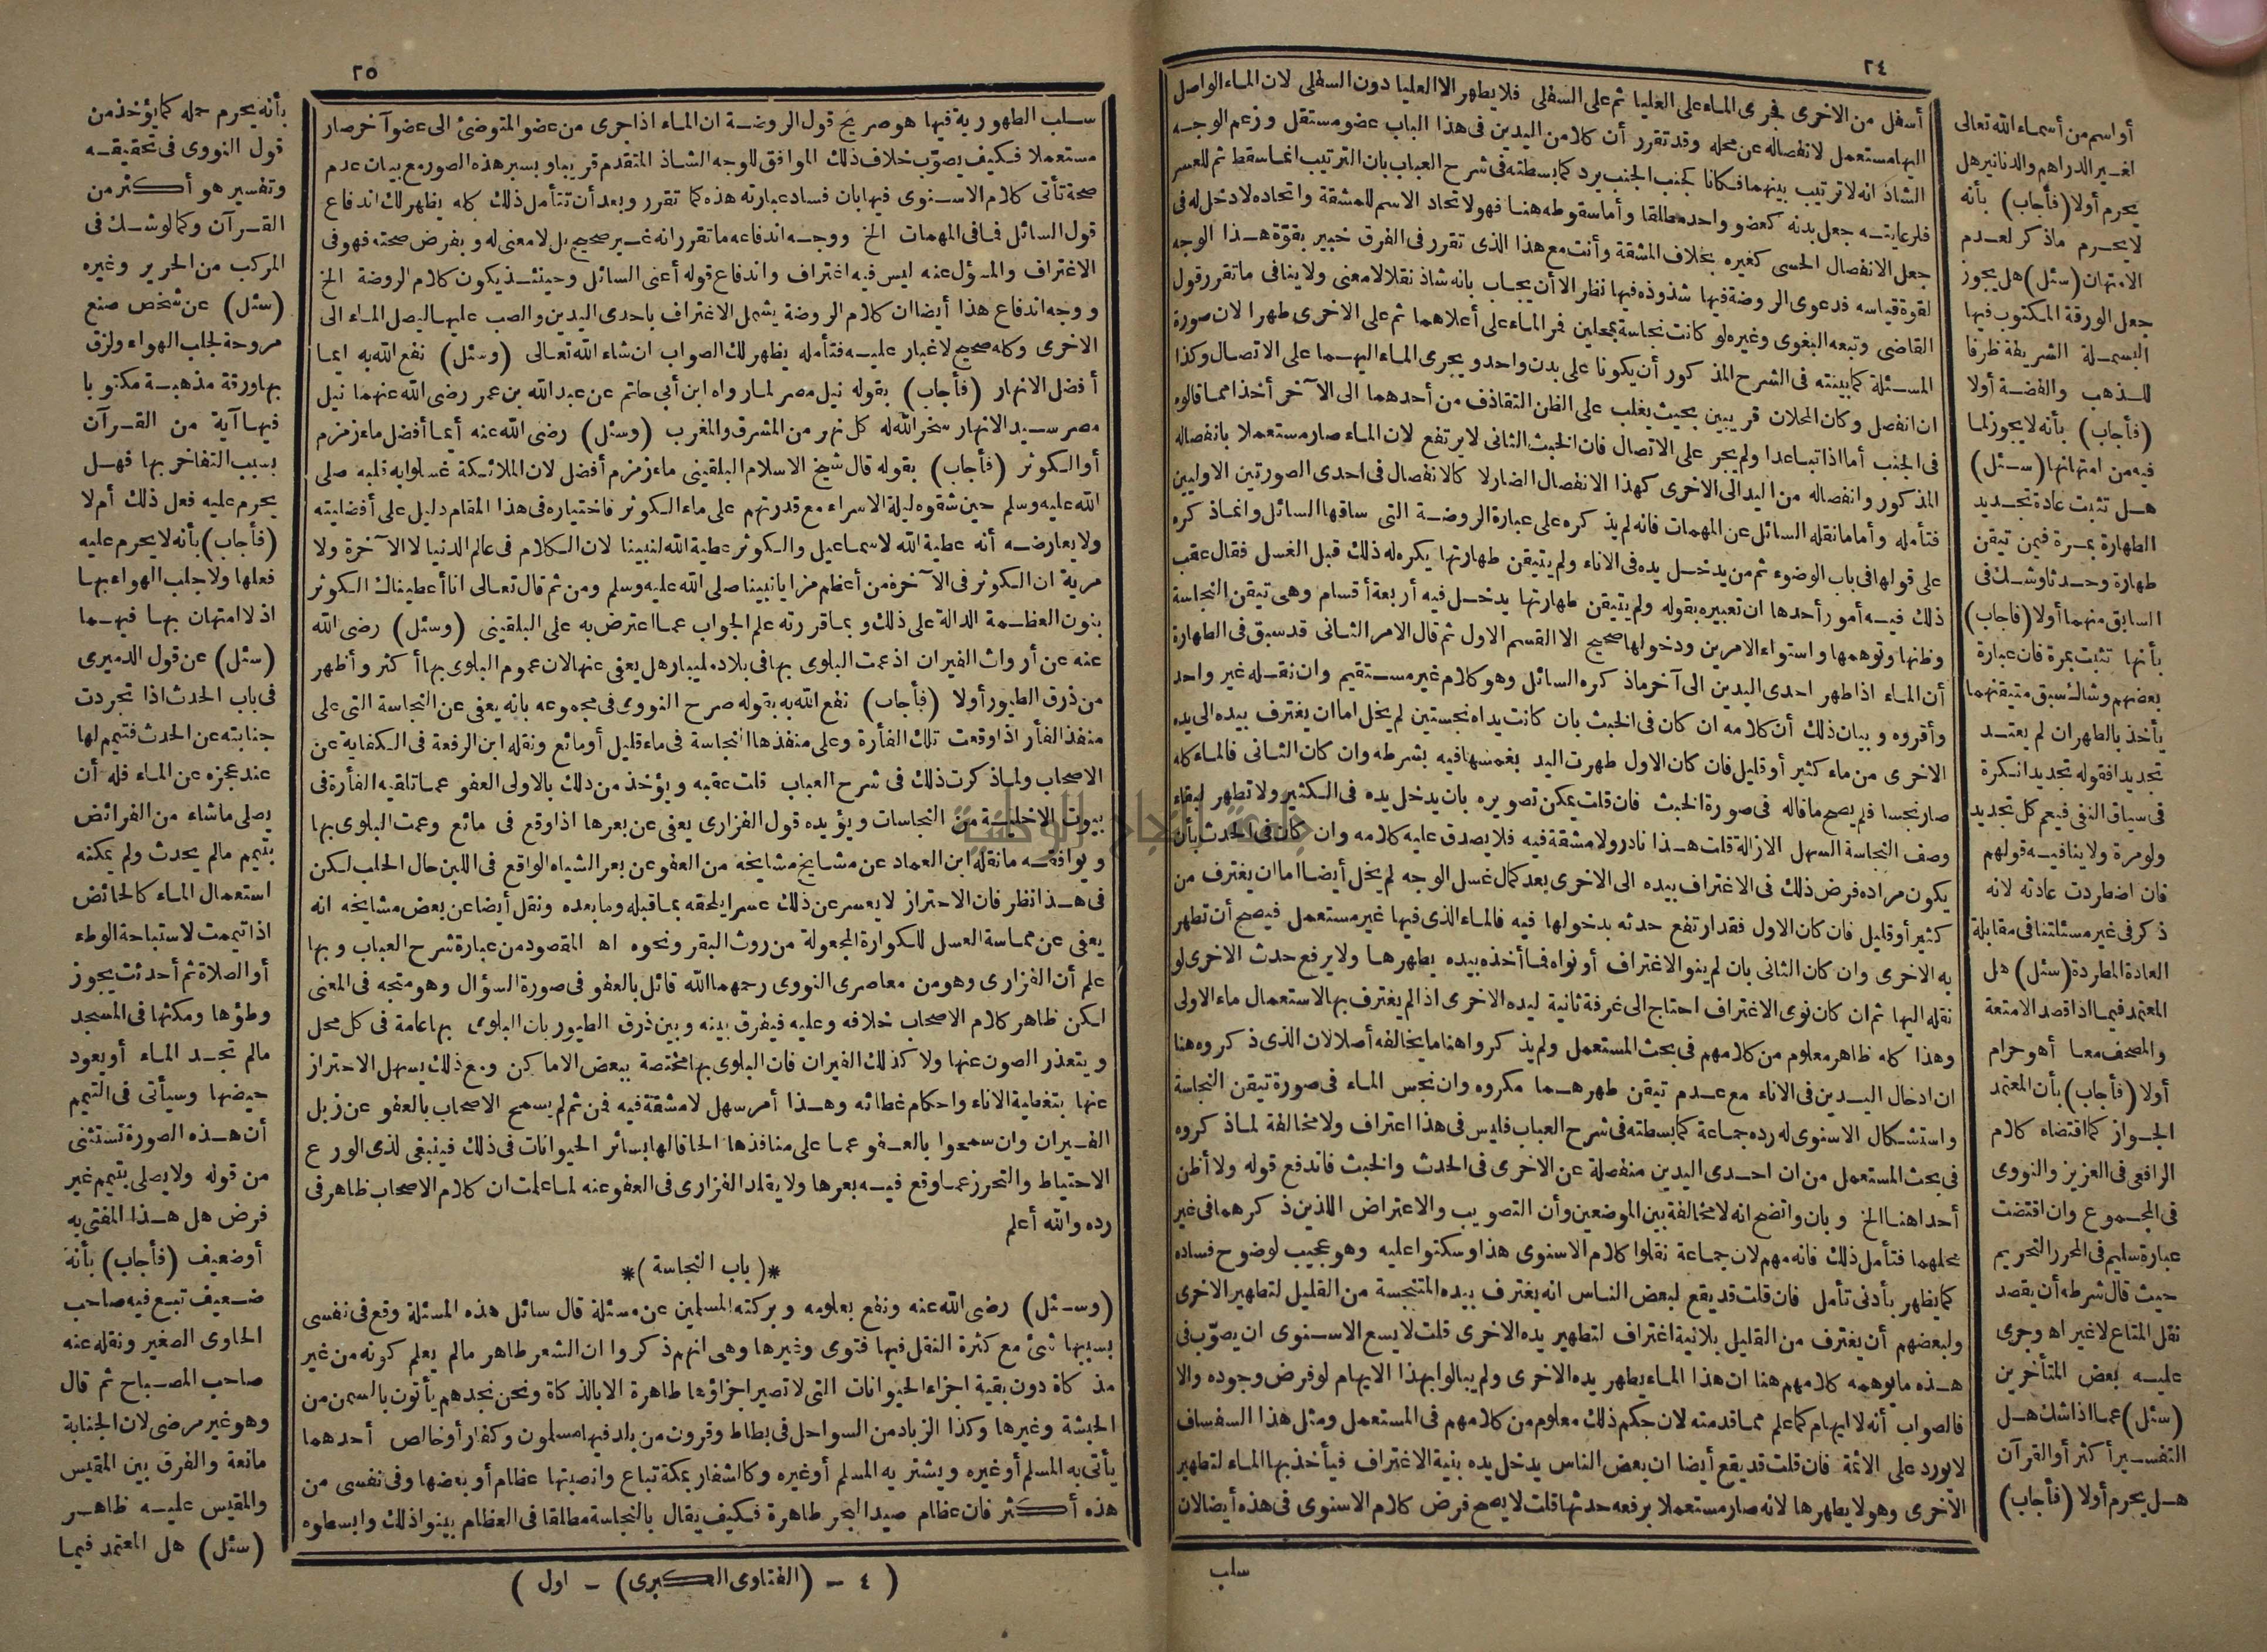 ٢٤
أسفل من الاخرى فجرى الماء على العليا ثم على السفلى فلا يطهر الا العليا دون السفلى لان الماء الواصل
اليها مستعمل لانفصاله عن محله وقد تقرر أن كلا من اليدين فى هذا الباب عضو مستقل وزعم الوجه
الشاذ انه لا ترتيب بينهما فكانا كجنب الجنب يرد كما بسطته فى شرح العباب بان الترتيب انما سقط ثم للعسر
فلرعايته جعل بدنه كعضو واحد مطلقا وأما سقوطه هنا فهو لاتحاد الاسم للمشقة واتحاده لا دخل له فى
جعل الانفصال الحسى كغيره بخلاف المشقة وأنت مع هذا الذى تقرر فى الفرق خبير بقوّة هذا الوجه
لقوة قياسه فدعوى الروضة فيها شذوذه فيها نظر الا أن يجاب بانه شاذ نقلا لا معنى ولا ينافى ما تقرر قول
القاضى وتبعه البغوى وغيره لو كانت نجاسة بمحلين فمر الماء على أعلاهما ثم على الاخرى طهرا لان صورة
المسئلة كما بينته فى الشرح المذكور أن يكونا على بدن واحد ويجرى الماء اليهما على الاتصال وكذا
ان انفصل وكان المحلان قريبين بحيث يغلب على الظن التقاذف من أحدهما الى الآخر أخذا مما قالوه
فى الجنب أما اذا تباعدا ولم يجر على الاتصال فان الخبث الثانى لا يرتفع لان الماء صار مستعملا بانفصاله
المذكور وانفصاله من اليد الى الاخرى كهذا الانفصال الضار لا كالانفصال فى احدى الصورتين الاوليين
فتأمله وأما ما نقله السائل عن المهمات فانه لم يذكره على عبارة الروضة التى ساقها السائل وانما ذكره
على قولها فى باب الوضوء ثم من يدخل يده فى الاناء ولم يتيقن طهارتها يكره له ذلك قبل الغسل فقال عقب
ذلك فيه أمور أحدها ان تعبيره بقوله ولم يتيقن طهارتها يدخل فيه أربعة أقسام وهى تيقن النجاسة
وظنها وتوهمها واستواء الامرين ودخولها صحيح الا القسم الاول ثم قال الامر الثانى قد سبق فى الطهارة
أن الماء اذا طهر احدى اليدين الى آخر ماذكره السائل وهو كلام غير مستقيم وان نقله غير واحد
وأقروه وبيان ذلك أن كلامه ان كان فى الخبث بان كانت يداه نجستين لم يخل اما ان يغترف بيده الى يده
الاخرى من ماء كثير أو قليل فان كان الاول طهرت اليد بغمسها فيه بشرطه وان كان الثانى فالماء كله
صار نجسا فلم يصح ما قاله فى صورة الخبث فان قلت يمكن تصويره بان يدخل يده فى الكثير ولا تطهر لبقاء
وصف النجاسة السهل الازالة قلت هذا نادر ولا مشقة فيه فلا يصدق عليه كلامه وان كان فى الحدث بأن
يكون مراده فرض ذلك فى الاغتراف بيده الى الاخرى بعد كمال غسل الوجه لم يخل أيضا اما ان يغترف من
كثير أو قليل فان كان الاول فقد ارتفع حدثه بدخولها فيه فالماء الذى فيها غير مستعمل فيصح أن تطهر
به الاخرى وان كان الثانى بان لم ينو الاغتراف أو نواه فما أخذه بيده يطهرها ولا يرفع حدث الاخرى لو
نقله اليها ثم ان كان نوى الاغتراف احتاج الى غرفة ثانية ليده الاخرى اذ لم يغترف بها الاستعمال ماء الاولى
وهذا كله ظاهر معلوم من كلامهم فى بحث المستعمل ولم يذكروا هنا ما يخالفه أصلا لان الذى ذكروه هنا
ان ادخال اليدين فى الاناء مع عدم تيقن طهرهما مكروه وان نجس الماء فى صورة تيقن النجاسة
واستشكال الاسنوى له رده جماعة كما بسطته فى شرح العباب فليس فى هذا اعتراف ولا مخالفة لما ذكروه
فى بحث المستعمل من ان احدى اليدين منفصلة عن الاخرى فى الحدث والخبث فاندفع قوله ولا أظن
أحدا هنا الخ وبان واتضح انه لا مخالفة بين الموضعين وأن التصويب والاعتراض اللذين ذكرهما فى غير
محلهما فتأمل ذلك فانه مهم لان جماعة نقلوا كلام الاسنوى هذا وسكتوا عليه وهو عجيب لوضوح فساده
كما يظهر بأدنى تأمل فان قلت قد يقع لبعض الناس انه يغترف بيده المتنجسة من القليل لتطهير الاخرى
ولبعضهم أن يغترف من القليل بلا نية اغتراف لتطهير يده الاخرى قلت لا يسع الاسنوى ان يصوّب فى
هذه ما يوهمه كلامهم هنا ان هذا الماء يطهر يده الاخرى ولم يبالوا بهذا الايهام لو فرض وجوده والا
فالصواب أنه لا ايهام كما علم مما قدمته لان حكم ذلك معلوم من كلامهم فى المستعمل ومثل هذا السفساف
لا يورد على الائمة فان قلت قد يقع أيضا ان بعض الناس يدخل يده بنية الاغتراف فيأخذ بها الماء لتطهير
الاخرى وهو لا يطهرها لانه صار مستعملا برفعه حدثها قلت لا يصح فرض كلام الاسنوى فى هذه أيضا لان
سلب
أو اسم من أسماء الله تعالى
لغير الدراهم والدنانير هل
يحرم أولا (فأجاب) بأنه
لا يحرم ماذكر لعدم
الامتهان (سئل) هل يجوز
جعل الورقة المكتوب فيها
البسملة الشريفة ظرفا
للذهب والفضة أولا
(فأجاب) بأنه لا يجوز لما
فيه من امتهانها (سئل)
هل تثبت عادة تجديد
الطهارة بمرة فيمن تيقن
طهارة وحدثا وشك فى
السابق منهما أولا (فأجاب)
بأنها تثبت بمرة فان عبارة
بعضهم وشاك سبق متيقنهما
يأخذ بالطهر ان لم يعتد
تجديدا فقوله تجديدا نكرة
فى سياق النفى فيعم كل تجديد
ولو مرة ولا ينافيه قولهم
فان اضطردت عادته لانه
ذكر فى غير مسئلتنا فى مقابلة
العادة المطردة (سئل) هل
المعتمد فيما اذا قصد الامتعة
والمصحف معا أهو حرام
أولا (فأجاب) بأن المعتمد
الجواز كما اقتضاه كلام
الرافعى فى العزيز والنووى
فى المجموع وان اقتضت
عبارة سليم فى المحرر التحريم
حيث قال شرطه أن يقصد
نقل المتاع لا غير اه وجرى
عليه بعض المتأخرين
(سئل) عما اذا شك هل
التفسير أكثر أو القرآن
هل يحرم أولا (فأجاب)
٢٥
سلب الطهورية فيها هو صريح قول الروضة ان الماء اذا جرى من عضو المتوضئ الى عضو آخر صار
مستعملا فكيف يصوّب خلاف ذلك الموافق للوجه الشاذ المتقدم قريبا وبسبر هذه الصور مع بيان عدم
صحة تأتى كلام الاسنوى فيها بان فساد عبارته هذه كما تقرر وبعد أن تتأمل ذلك كله يظهر لك اندفاع
قول السائل فما فى المهمات الخ ووجه اندفاعه ما تقرر انه غير صحيح بل لا معنى له وبفرض صحته فهو فى
الاغتراف والمسؤل عنه ليس فيه اغتراف واندفاع قوله أعنى السائل وحينئذ يكون كلام الروضة الخ
ووجه اندفاع هذا أيضا ان كلام الروضة يشمل الاغتراف باحدى اليدين والصب عليها ليصل الماء الى
الاخرى وكله صحيح لا غبار عليه فتأمله يظهر لك الصواب ان شاء الله تعالى (وسئل) نفع الله به ايما
أفضل الانهار (فأجاب) بقوله نيل مصر لما رواه ابن أبى حاتم عن عبد الله بن عمر رضى الله عنهما نيل
مصر سيد الانهار سخر الله له كل نهر من المشرق والمغرب (وسئل) رضى الله عنه أيما أفضل ماء زمزم
أو الكوثر (فأجاب) بقوله قال شيخ الاسلام البلقينى ماء زمزم أفضل لان الملائكة غسلوا به قلبه صلى
الله عليه وسلم حين شقوه ليلة الاسراء مع قدرتهم على ماء الكوثر فاختياره فى هذا المقام دليل على أفضليته
ولا يعارضه أنه عطية الله لاسماعيل والكوثر عطية الله لنبينا لان الكلام فى عالم الدنيا لا الآخرة ولا
مرية ان الكوثر فى الآخرة من أعظم مزايا نبينا صلى الله عليه وسلم ومن ثم قال تعالى انا أعطيناك الكوثر
بنون العظمة الدالة على ذلك وبما قررته علم الجواب عما اعترض به على البلقينى (وسئل) رضى الله
عنه عن أرواث الفيران اذ عمت البلوى بها فى بلاد مليبار هل يعفى عنها لان عموم البلوى بها أكثر وأظهر
من ذرق الطيور أولا (فأجاب) نفع الله به بقوله صرح النووى فى مجموعه بانه يعفى عن النجاسة التى على
منفذ الفأر اذا وقعت تلك الفأرة وعلى منفذها النجاسة فى ماء قليل أو مائع ونقله ابن الرفعة فى الكفاية عن
الاصحاب ولما ذكرت ذلك فى شرح العباب قلت عقبه ويؤخذ من ذلك بالاولى العفو عما تلقيه الفأرة فى
بيوت الاخلية من النجاسات ويؤيده قول الفزارى يعفى عن بعرها اذا وقع فى مائع وعمت البلوى بها
ويوافقه ما نقله ابن العماد عن مشايخ مشايخه من العفو عن بعر الشياه الواقع فى اللبن حال الحلب لكن
فى هذا نظر فان الاحتراز لا يعسر عن ذلك عسرا يلحقه بما قبله وما بعده ونقل أيضا عن بعض مشايخه انه
يعفى عن مماسة العسل للكوارة المجعولة من روث البقر ونحوه اه المقصود من عبارة شرح العباب وبها
علم أن الفزارى وهو من معاصرى النووى رحمهما الله قائل بالعفو فى صورة السؤال وهو متجه فى المعنى
لكن ظاهر كلام الاصحاب خلافه وعليه فيفرق بينه وبين ذرق الطيور بان البلوى بها عامة فى كل محل
ويتعذر الصون عنها ولا كذلك الفيران فان البلوى بها مختصة ببعض الاماكن ومع ذلك يسهل الاحتراز
عنها بتغطية الاناء واحكام غطائه وهذا أمر سهل لا مشقة فيه فمن ثم لم يسمح الاصحاب بالعفو عن زبل
الفيران وان سمحوا بالعفو عما على منافذها الحاقا لها بسائر الحيوانات فى ذلك فينبغى لذى الورع
الاحتياط والتحرز عما وقع فيه بعرها ولا يقلد الفزارى فى العفو عنه لما علمت ان كلام الاصحاب ظاهر فى
رده والله أعلم
*(باب النجاسة)*
(وسئل) رضى الله عنه ونفع بعلومه وبركته المسلمين عن مسئلة قال سائل هذه المسئلة وقع فى نفسى
بسببها شئ مع كثرة النقل فيها فتوى وغيرها وهى انهم ذكروا ان الشعر طاهر مالم يعلم كونه من غير
مذكاة دون بقية اجزاء الحيوانات التى لا تصير اجزاؤها طاهرة الا بالذكاة ونحن نجدهم يأتون بالسمن من
الحبشة وغيرها وكذا الزباد من السواحل فى بطاط وقرون من بلد فيها مسلمون وكفار أو خالص أحدهما
يأتى به المسلم أو غيره ويشتريه المسلم أو غيره وكالشفار بمكة تباع وانصبتها عظام أو بعضها وفى نفسى من
هذه أكثر فان عظام صيد البحر طاهرة فكيف يقال بالنجاسة مطلقا فى العظام بينوا ذلك وابسطوه
(٤ - (الفتاوى الكبرى) - اول)
بأنه يحرم حمله كما يؤخذ من
قول النووى فى تحقيقه
وتفسير هو أكثر من
القرآن وكما لو شك فى
المركب من الحرير وغيره
(سئل) عن شخص صنع
مروحة لجلب الهواء ولزق
بها ورقة مذهبة مكتوبا
فيها آية من القرآن
بسبب التفاخر بها فهل
يحرم عليه فعل ذلك أم لا
(فأجاب) بأنه لا يحرم عليه
فعلها ولا جلب الهواء بها
اذ لا امتهان بها فيهما
(سئل) عن قول الدميرى
فى باب الحدث اذا تجردت
جنابته عن الحدث فتيمم لها
عند عجزه عن الماء فله أن
يصلى ماشاء من الفرائض
بتيمم مالم يحدث ولم يمكنه
استعمال الماء كالحائض
اذا تيممت لاستباحة الوطء
أو الصلاة ثم أحدثت يجوز
وطؤها ومكثها فى المسجد
مالم تجد الماء أو يعود
حيضها وسيأتى فى التيمم
أن هذه الصورة تستثنى
من قوله ولا يصلى بتيمم غير
فرض هل هذا المفتى به
أو ضعيف (فأجاب) بأنه
ضعيف تبع فيه صاحب
الحاوى الصغير ونقله عنه
صاحب المصباح ثم قال
وهو غير مرضى لان الجنابة
مانعة والفرق بين المقيس
والمقيس عليه ظاهر
(سئل) هل المعتمد فيما